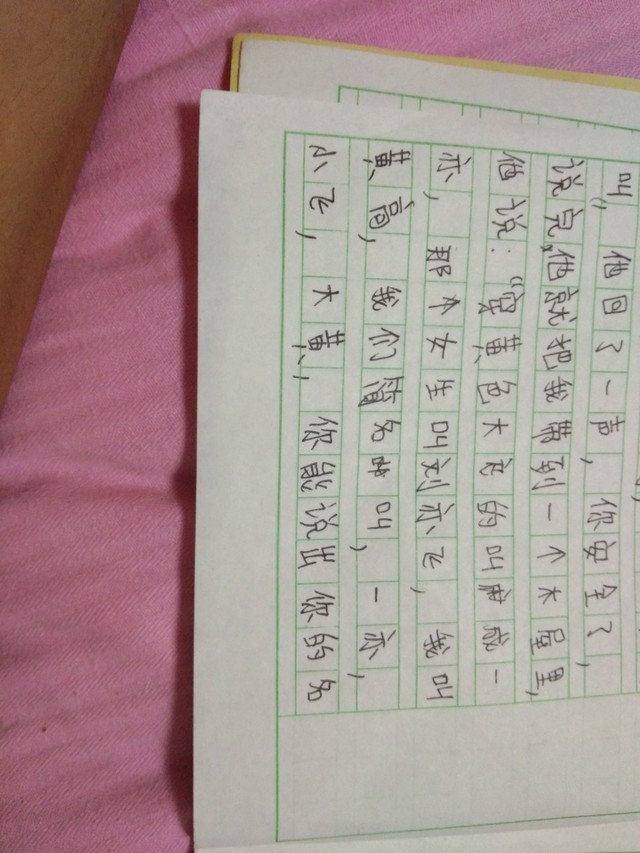 叫”,他回了一声,你安全了,
说完,他就把我带到一个木屋里,
他说:“穿黄色大衣的叫成一
亦,那个女生叫刘亦飞,我叫
黄高,我们简名叫,一亦,
小飞,大黄,你能说出你的名